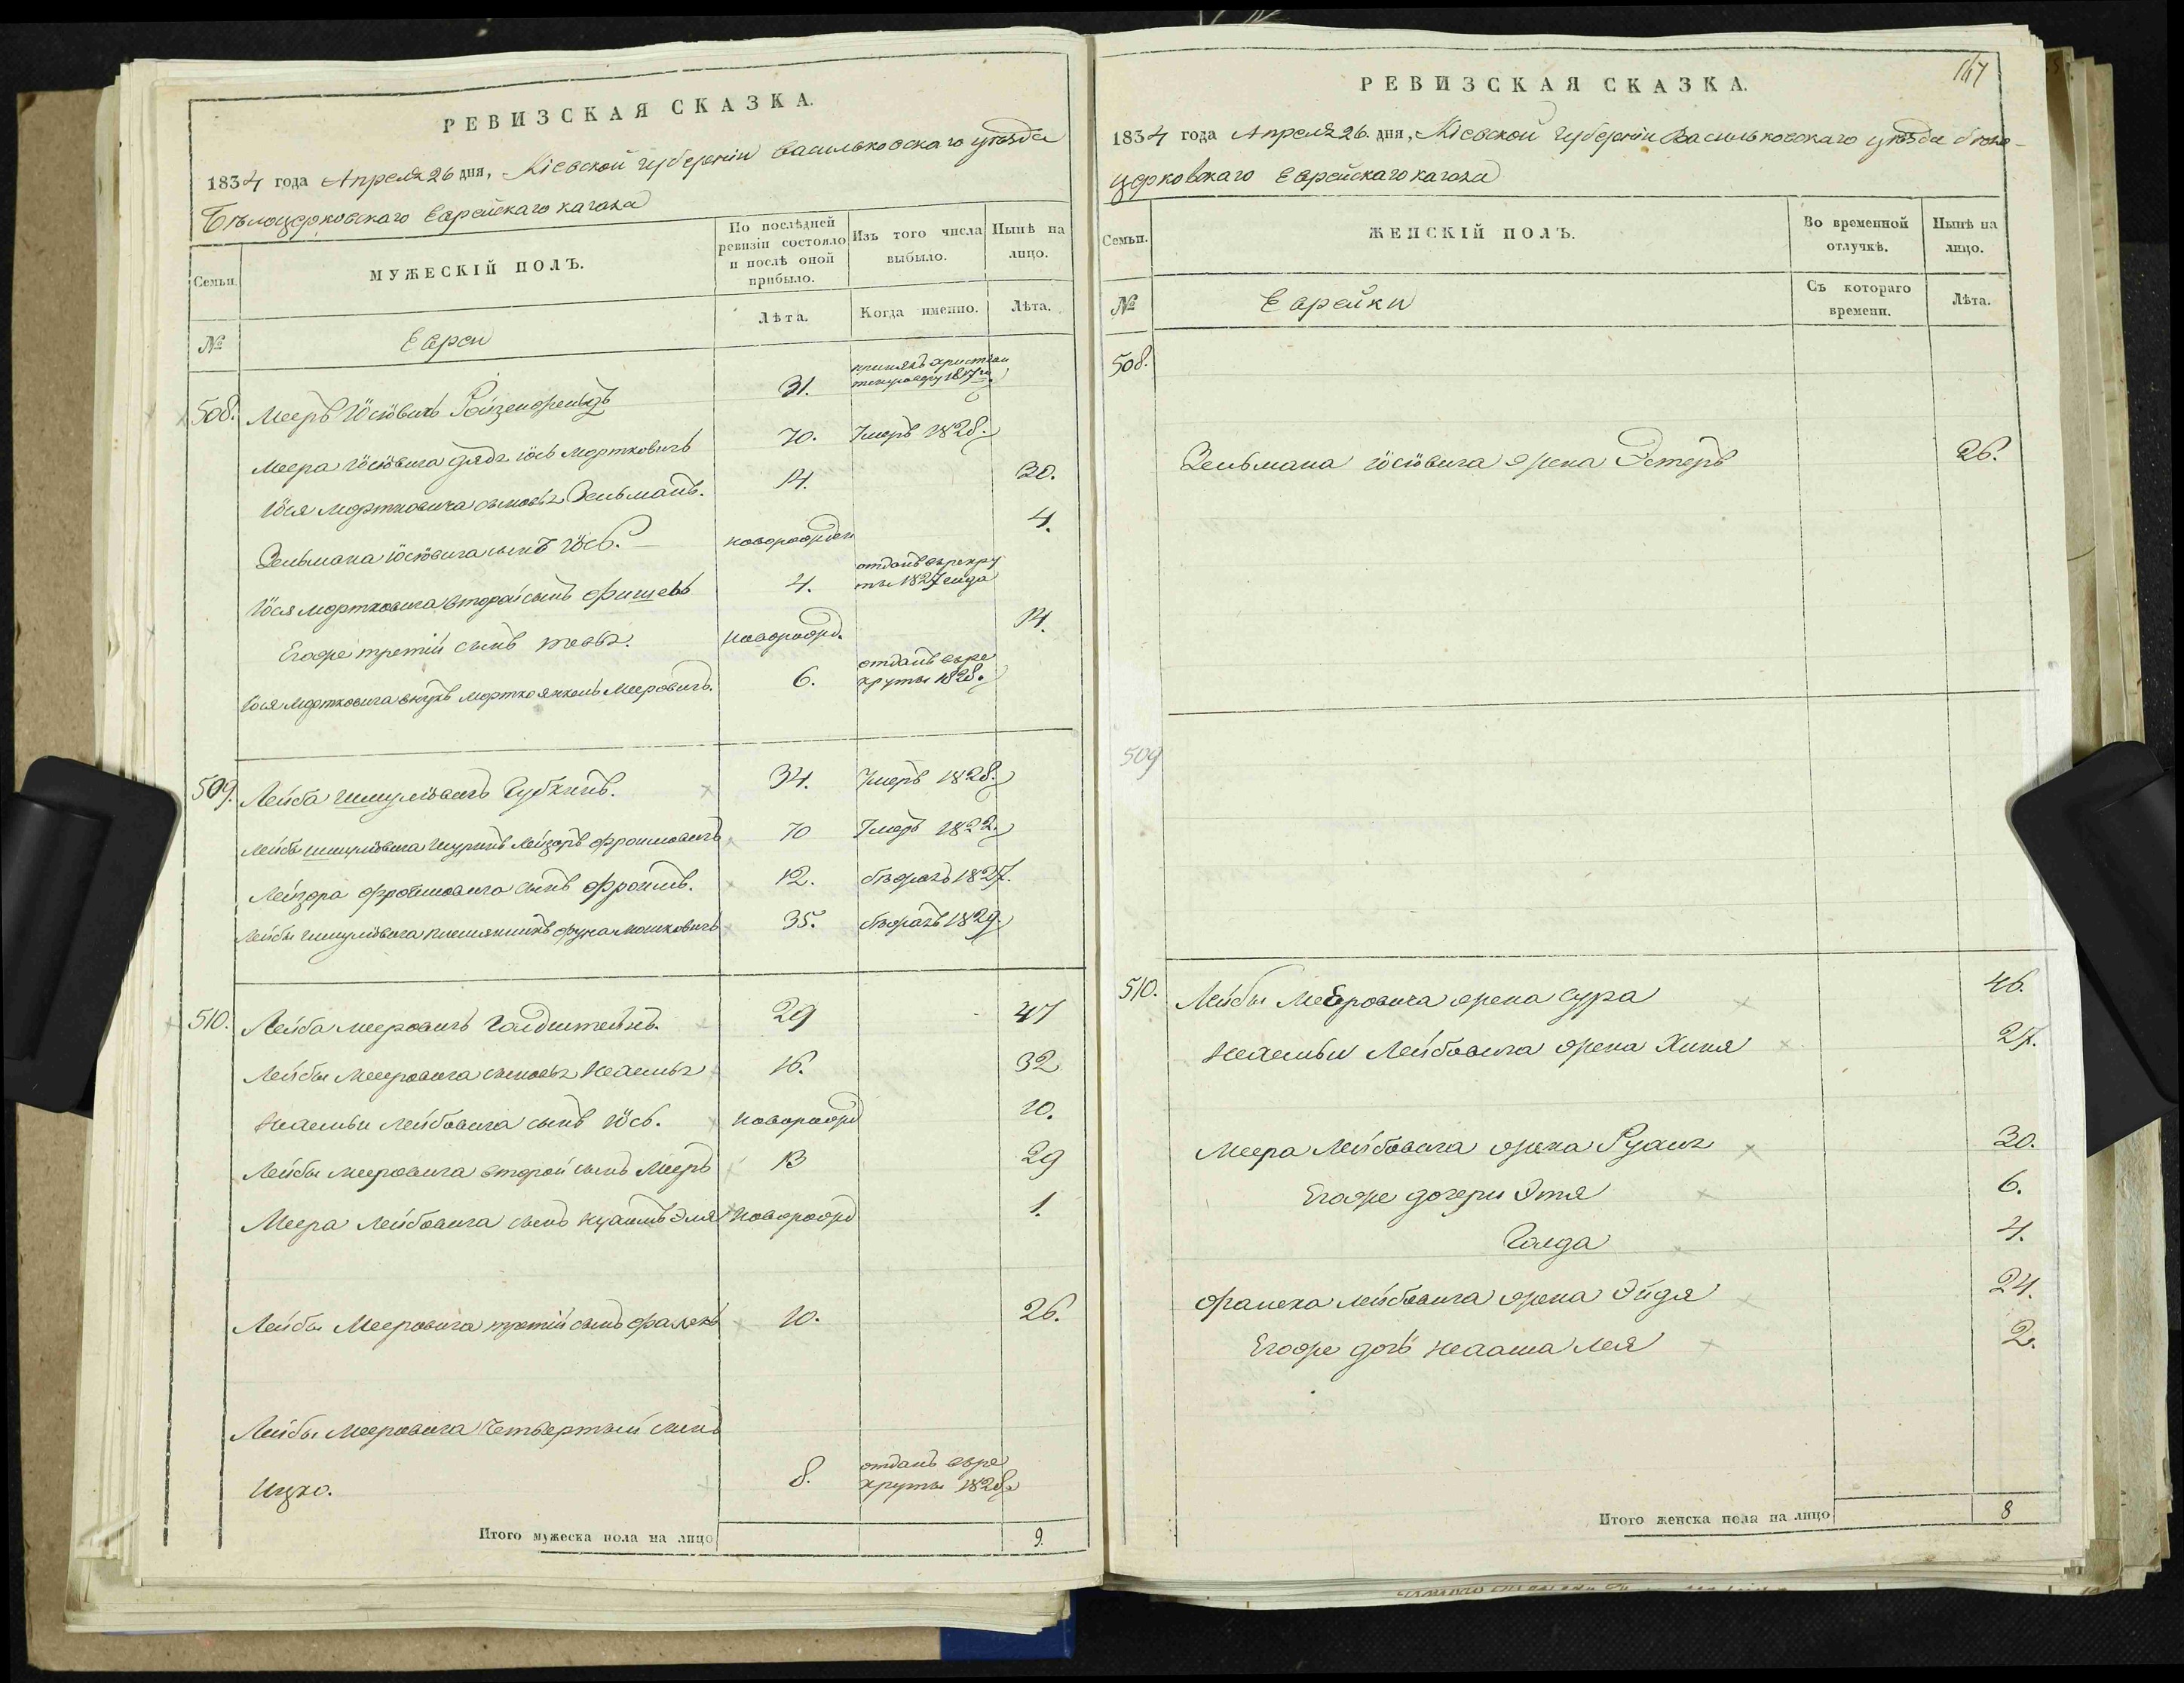 РЕВИЗСКАЯ СКАЗКА.
1834 года Апреля 26 дня, Кіевской губерніи Васильковскаго уѣзда
Бѣлоцерковскаго Еврейскаго кагала
Семьи.
МУЖЕСКІЙ ПОЛЪ.
По послѣдней ревизіи состояло и послѣ оной прибыло.
Изъ того числа выбыло.
Нынѣ на лицо.
№
Евреи
Лѣта.
Когда именно.
Лѣта.
508. Мееръ Іосіовичъ 31. принялъ христіан
Меера Іосіовича дядя Іось Мортковичъ 70. Умеръ 1828.
Іося Мортковича сыновья Зельманъ. 14. 30.
Зельмана Іосіовича сынъ Іось. новорожден 4.
Іося Мортковича второй сынъ Фишель 4. отданъ в рекру
ты 1827 года
Егоже третій сынъ новорожд. 14.
Іося Мортковича внукъ Мортко Янкель Мееровичъ. 6. отданъ в ре
круты 1828.
509. Лейба Шмулiовичъ Губкинъ. 34. Умеръ 1828.
Лейбы Шмулiовича Шуринъ Лейзоръ Фроимовичъ 70 Умеръ 1822.
Лейзора Фроимовича сынъ Фроимъ. 12. бѣжалъ 1827.
Лейбы Шмулiовича племянникъ Мошковичъ 35. бѣжалъ 1829.
510. Лейба Мееровичъ Голдштейнъ. 29 47
Лейбы Мееровича сыновья Нехемья 16. 32
Нехемьи Лейбовича сынъ Іось. новорожд 10.
Лейбы Мееровича второй сынъ Мееръ 13 29
Меера Лейбовича сынъ Эля новорожд 1.
Лейбы Мееровича третій сынъ 10. 26.
Лейбы Мееровича четвертый сынъ
Ицко. 8. отданъ в ре
круты 1828
Итого мужеска пола на лицо 9.
147
РЕВИЗСКАЯ СКАЗКА.
1834 года Апреля 26. дня, Кіевской губерніи Васильковскаго уѣзда бѣло-
церковскаго Еврейскаго кагала
Семьи.
ЖЕНСКІЙ ПОЛЪ.
Во временной отлучкѣ.
Нынѣ на лицо.
№
Еврейки
Съ котораго времени.
Лѣта.
508.
Зельмана Іосіовича жена Эстеръ 26.
509
510. Лейбы Мееровича жена Сура 46.
Нехемьи Лейбовича жена Хиня 27.
Меера Лейбовича жена 30.
Егоже дочери Этя 6.
Голда 4.
Лейбовича жена Эйдя 24.
Егоже дочь Лея 2.
Итого женска пола на лицо 8